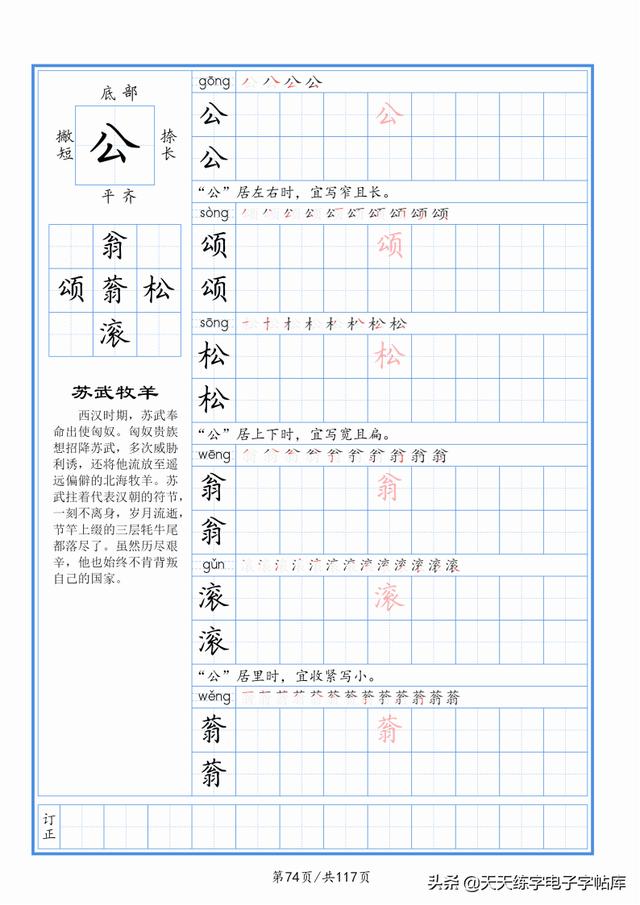 底部
撇短
公
捺长
平齐
翁
颂 蓊 松
滚
苏武牧羊
西汉时期，苏武奉
命出使匈奴。匈奴贵族
想招降苏武，多次威胁
利诱，还将他流放至遥
远偏僻的北海牧羊。苏
武拄着代表汉朝的符节，
一刻不离身，岁月流逝，
节竿上缀的三层牦牛尾
都落尽了。虽然历尽艰
辛，他也始终不肯背叛
自己的国家。
gōng
公 公
公
“公”居左右时，宜写窄且长。
sòng
颂 颂
颂
sōng
松 松
松
“公”居上下时，宜写宽且扁。
wēng
翁 翁
翁
gǔn
滚 滚
滚
“公”居里时，宜收紧写小。
wěng
蓊 蓊
蓊
订正
第74页/共117页
头条 @天天练字电子字帖库